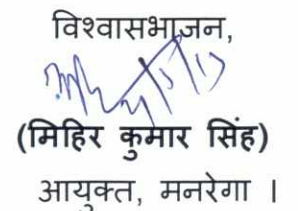 विश्वासभाजन,
(मिहिर कुमार सिंह)
आयुक्त, मनरेगा ।